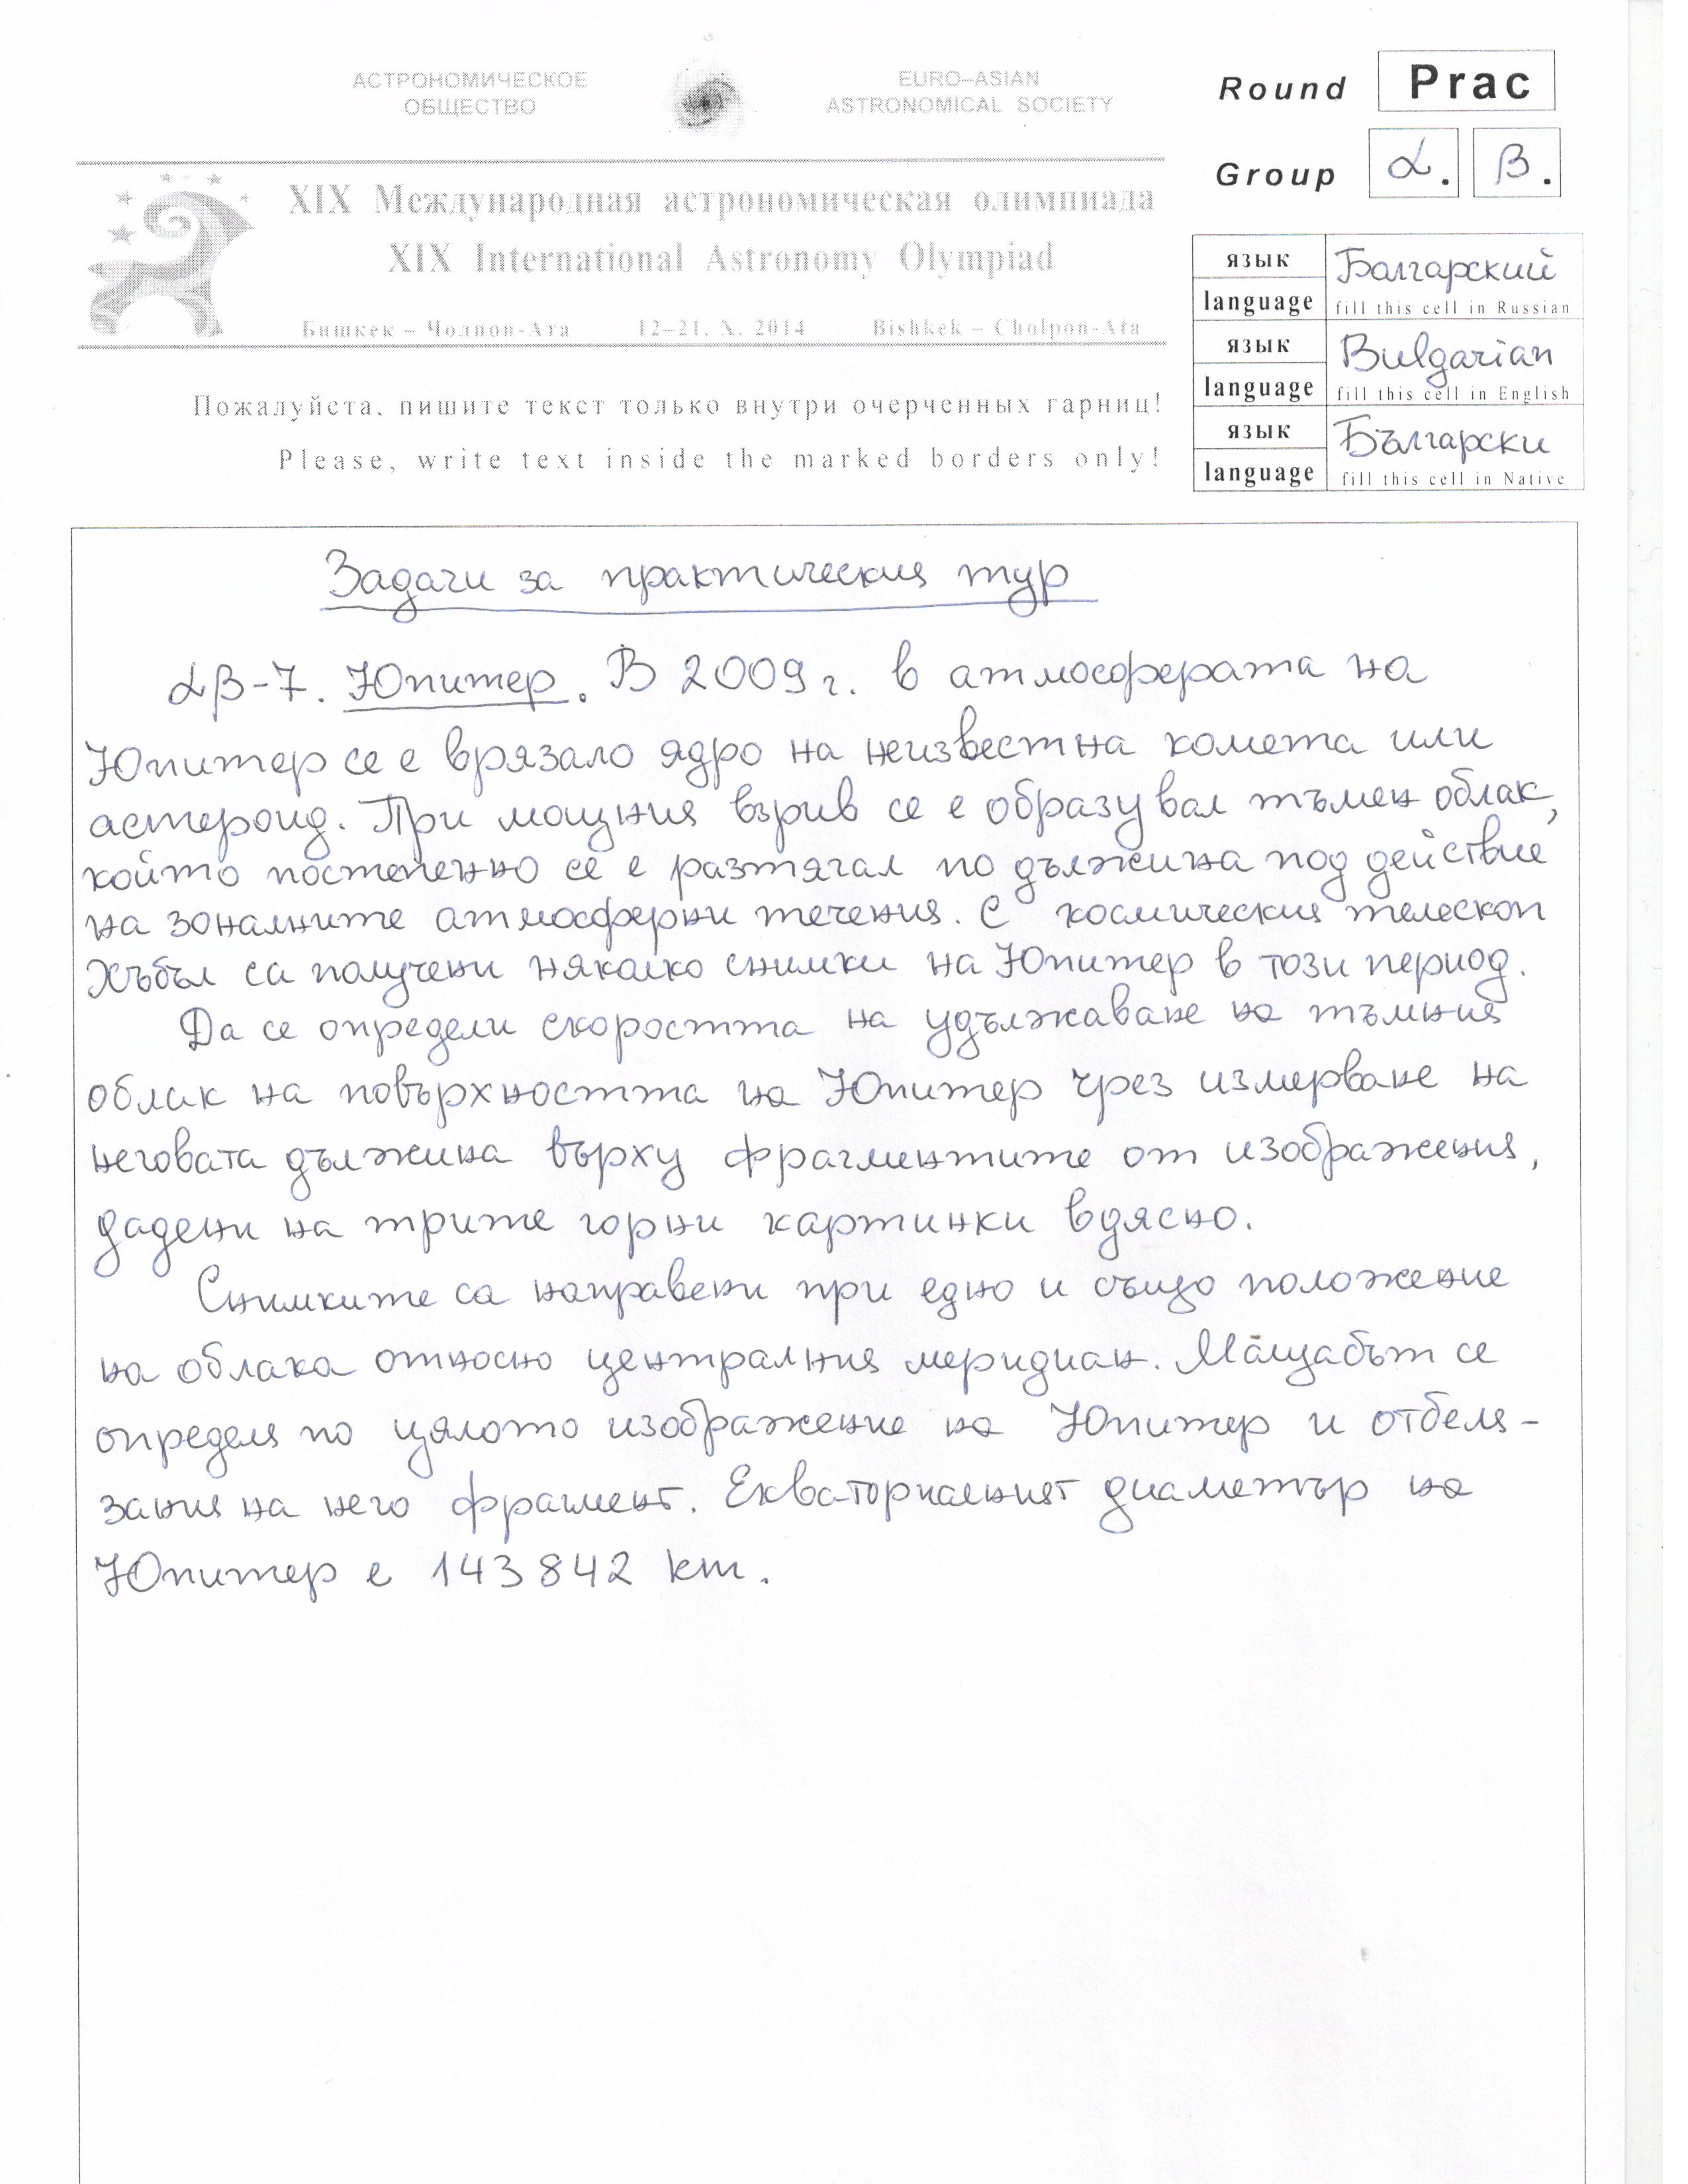 АСТРОНОМИЧЕСКОЕ
ОБЩЕСТВО
EURO–ASIAN
ASTRONOMICAL SOCIETY
Round Prac
Group α. β.
XIX Международная астрономическая олимпиада
XIX International Astronomy Olympiad
Бишкек – Чолпон-Ата 12–21. X. 2014 Bishkek – Cholpon-Ata
язык
language
Болгарский
fill this cell in Russian
язык
language
Bulgarian
fill this cell in English
язык
language
Български
fill this cell in Native
Пожалуйста, пишите текст только внутри очерченных гарниц!
Please, write text inside the marked borders only!
Задачи за практическия тур
αβ-7. Юпитер. В 2009 г. в атмосферата на
Юпитер се е врязало ядро на неизвестна комета или
астероид. При мощния взрив се е образувал тъмен облак,
който постепенно се е разтягал по дължина под действие
на зоналните атмосферни течения. С космическия телескоп
Хъбъл са получени няколко снимки на Юпитер в този период.
Да се определи скоростта на удължаване на тъмния
облак на повърхността на Юпитер чрез измерване на
неговата дължина върху фрагментите от изображения,
дадени на трите горни картинки вдясно.
Снимките са направени при едно и също положение
на облака относно централния меридиан. Мащабът се
определя по цялото изображение на Юпитер и отбеля-
зания на него фрагмент. Екваториалният диаметър на
Юпитер е 143842 km.